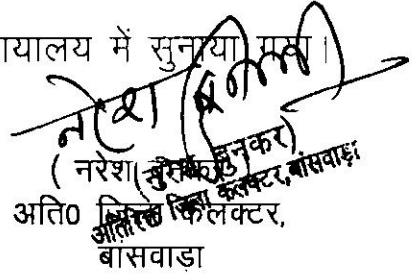 यालय में सुनाया गया।
नरेश
( नरेश बुनकर)
अति० जिला कलक्टर,
अतिरिक्त जिला कलक्टर, बांसवाड़ा
बांसवाडा